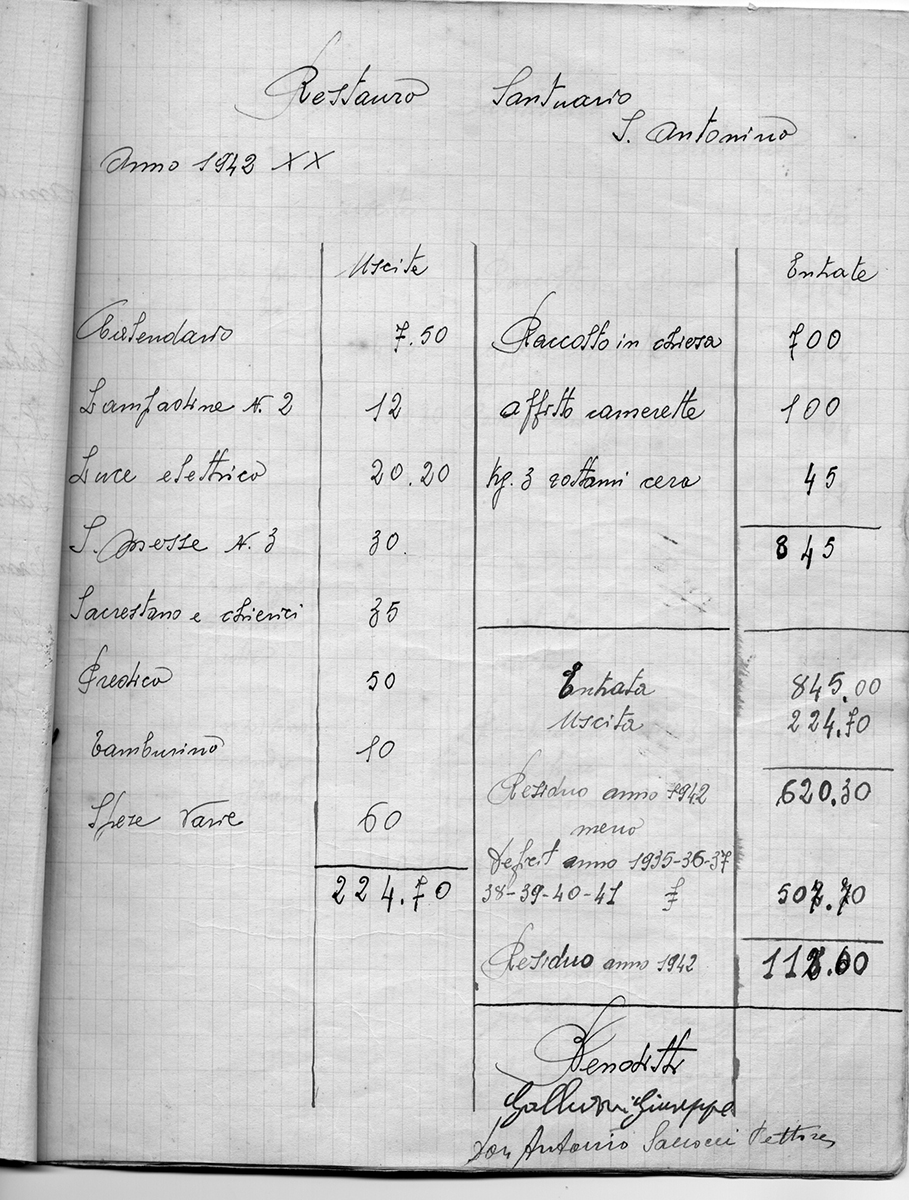 Restauro Santuario
S. Antonino
Anno 1942 XX
Uscite
Calendario 7.50
Lampadine N. 2 12
Luce elettrica 20.20
S. Messe N. 3 30
Sacrestano e chierici 35
Predica 50
Tamburino 10
Spese varie 60
224.70
Entrate
Raccolto in chiesa 700
Affitto camerette 100
Kg. 3 rottami cera 45
845
Entrata 845.00
Uscita 224.70
Residuo anno 1942 620.30
meno
Deficit anno 1935-36-37
38-39-40-41 £ 507.70
Residuo anno 1942
Venditti
Galluzzi Giuseppe
Don Antonio Rettore